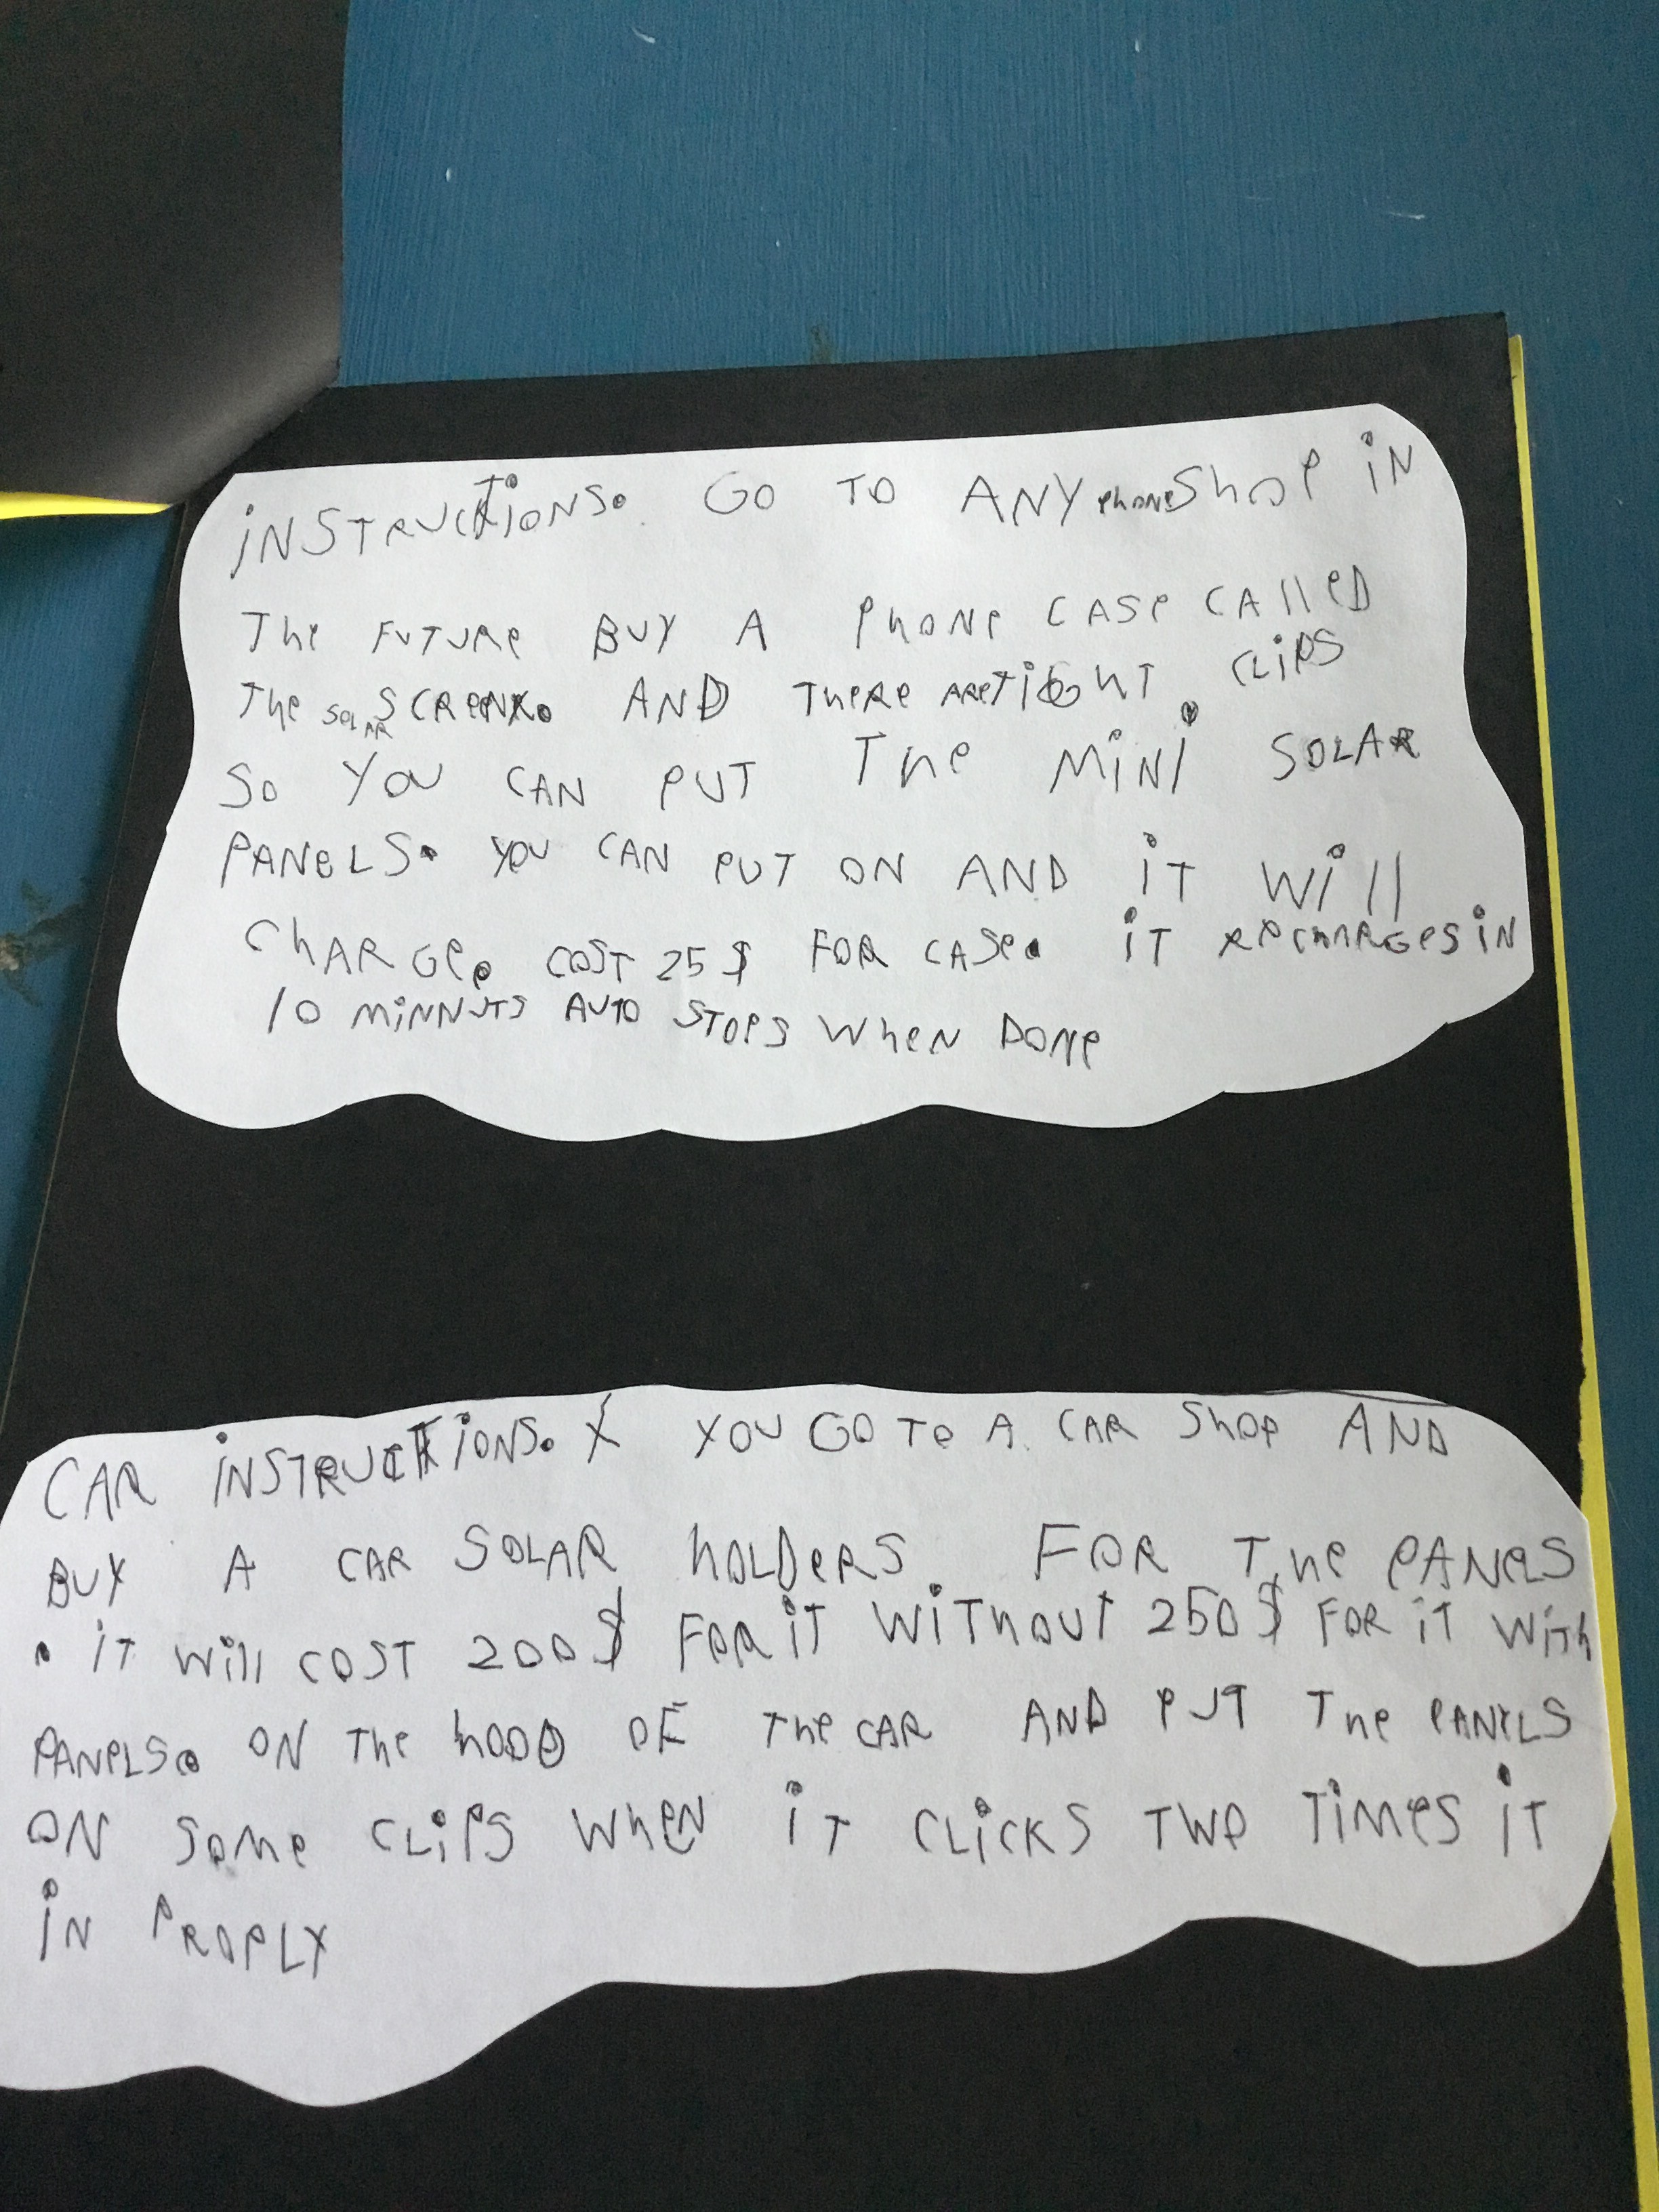 iNSTRUCTiONS. GO TO ANY phone Shop iN
The FUTURe BUY A PhONe CASe CAlleD
The SOLAR SCReeN. AND THERe ARe TiGhT CLiPS
SO YOU CAN PUT The MiNi SOLAR
PANeLS. YOU CAN PUT ON AND iT Will
ChARGe. COST 25$ FOR CASe. iT ReChARGeS iN
10 MiNNUTS AUTO STOPS WheN DONe
CAR iNSTRUCTiONS. YOU GO TO A CAR ShOP AND
BUY A CAR SOLAR hOLDeRS FOR The PANeLS
. iT Will COST 200$ FOR iT WiThOUT 250$ FOR iT WiTh
PANeLS. ON The hOOD OF The CAR AND PUT The PANeLS
ON SOMe CLiPS WheN iT CLiCKS TWO TiMeS iT
iN PROPLY